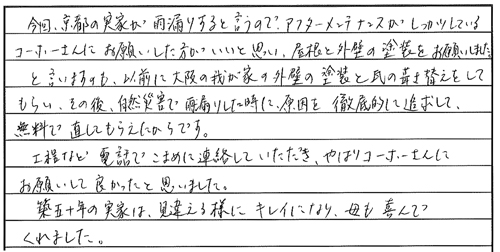 今回、京都の実家が雨漏りすると言うので、アフターメンテナンスがしっかりしている
コーホーさんにお願いした方がいいと思い、屋根と外壁の塗装をお願いしました。
と言いますのも、以前に大阪の我が家の外壁の塗装と瓦の葺き替えをして
もらい、その後、自然災害で雨漏りした時に、原因を徹底的に追求して、
無料で直してもらえたからです。
工程など電話でこまめに連絡していただき、やはりコーホーさんに
お願いして良かったと思いました。
築五十年の実家は、見違える様にキレイになり、母も喜んで
くれました。